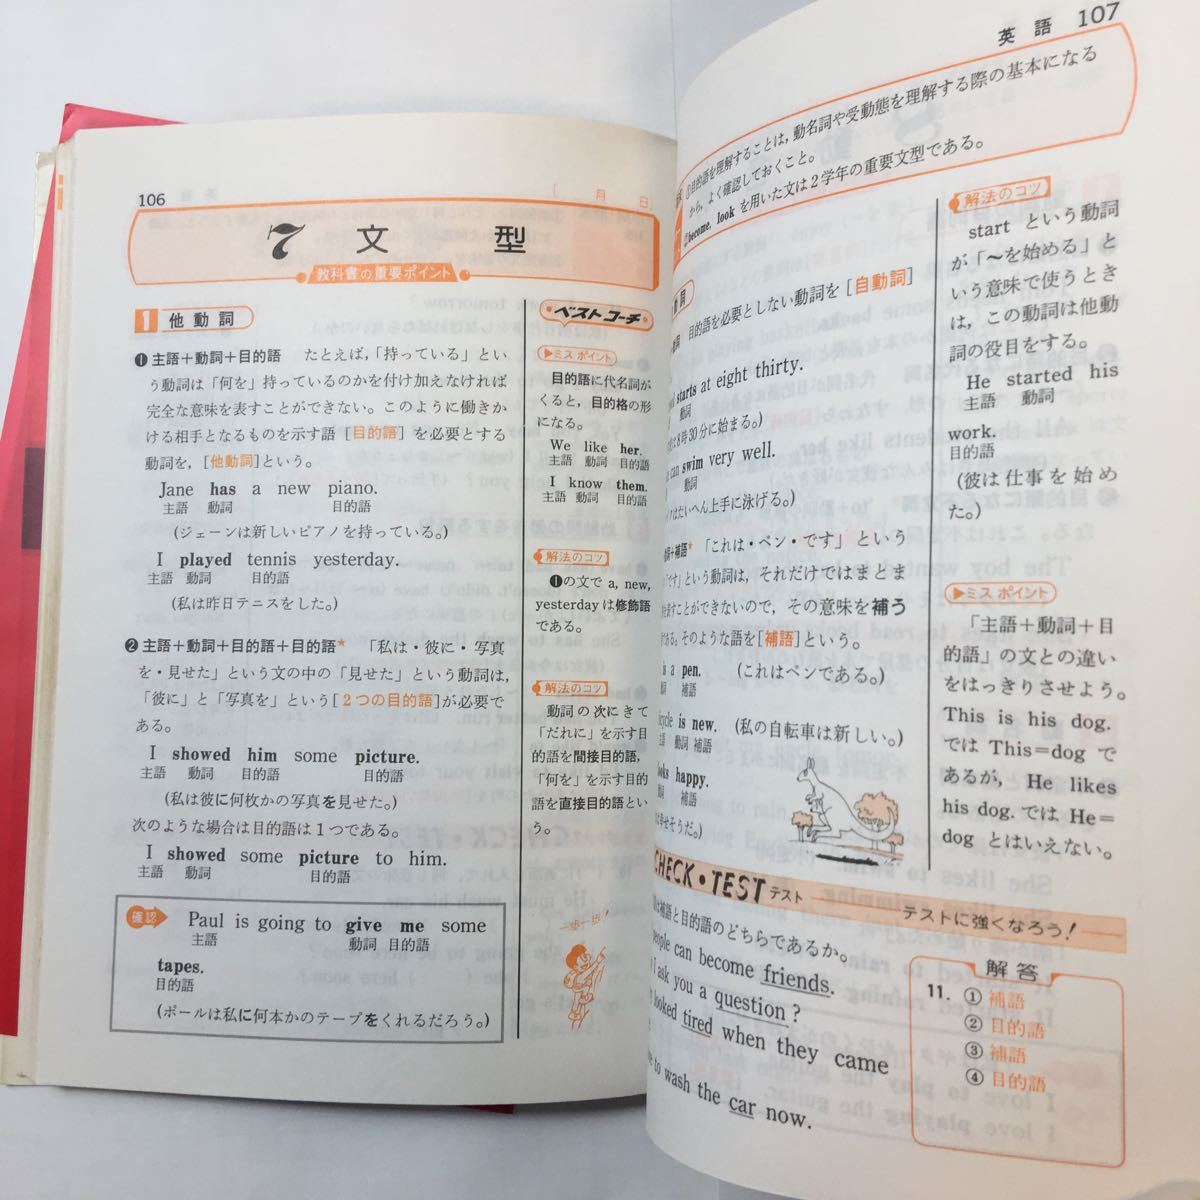 106
月 日
7 文型
教科書の重要ポイント
1 他動詞
❶ 主語+動詞+目的語 たとえば,「持っている」とい
う動詞は「何を」持っているのかを付け加えなければ
完全な意味を表すことができない。このように働きか
ける相手となるものを示す語[目的語]を必要とする
動詞を,[他動詞]という。
Jane has a new piano.
主語 動詞 目的語
(ジェーンは新しいピアノを持っている。)
I played tennis yesterday.
主語 動詞 目的語
(私は昨日テニスをした。)
❷ 主語+動詞+目的語+目的語★ 「私は・彼に・写真
を・見せた」という文の中の「見せた」という動詞は,
「彼に」と「写真を」という[2つの目的語]が必要で
ある。
I showed him some picture.
主語 動詞 目的語 目的語
(私は彼に何枚かの写真を見せた。)
次のような場合は目的語は1つである。
I showed some picture to him.
主語 動詞 目的語
確認
Paul is going to give me some
主語 動詞 目的語
tapes.
目的語
(ポールは私に何本かのテープをくれるだろう。)
ベストコーチ
▶ミスポイント
目的語に代名詞が
くると,目的格の形
になる。
We like her.
主語 動詞 目的語
I know them.
主語 動詞 目的語
解法のコツ
❶の文で a, new,
yesterdayは修飾語
である。
解法のコツ
動詞の次にきて
「だれに」を示す目
的語を間接目的語,
「何を」を示す目的
語を直接目的語とい
う。
一歩一歩!
英語 107
①目的語を理解することは,動名詞や受動態を理解する際の基本になる
から,よく確認しておくこと。
②become, look を用いた文は2学年の重要文型である。
目的語を必要としない動詞を[自動詞]
starts at eight thirty.
動詞
は8時30分に始まる。)
can swim very well.
動詞
はたいへん上手に泳げる。)
+補語★ 「これは・ペン・です」という
です」という動詞は,それだけではまとま
すことができないので,その意味を補う
である。そのような語を[補語]という。
is a pen. (これはペンである。)
補語
is new. (私の自転車は新しい。)
動詞 補語
looks happy.
補語
せそうだ。)
解法のコツ
start という動詞
が「〜を始める」と
いう意味で使うとき
は,この動詞は他動
詞の役目をする。
He started his
主語 動詞
work.
目的語
(彼は仕事を始め
た。)
▶ミスポイント
「主語+動詞+目
的語」の文との違い
をはっきりさせよう。
This is his dog.
では This=dog で
あるが, He likes
his dog. では He=
dog とはいえない。
CHECK・TEST テスト
テストに強くなろう!
は補語と目的語のどちらであるか。
people can become friends.
I ask you a question?
looked tired when they came
to wash the car now.
解答
11. ① 補語
② 目的語
③ 補語
④ 目的語